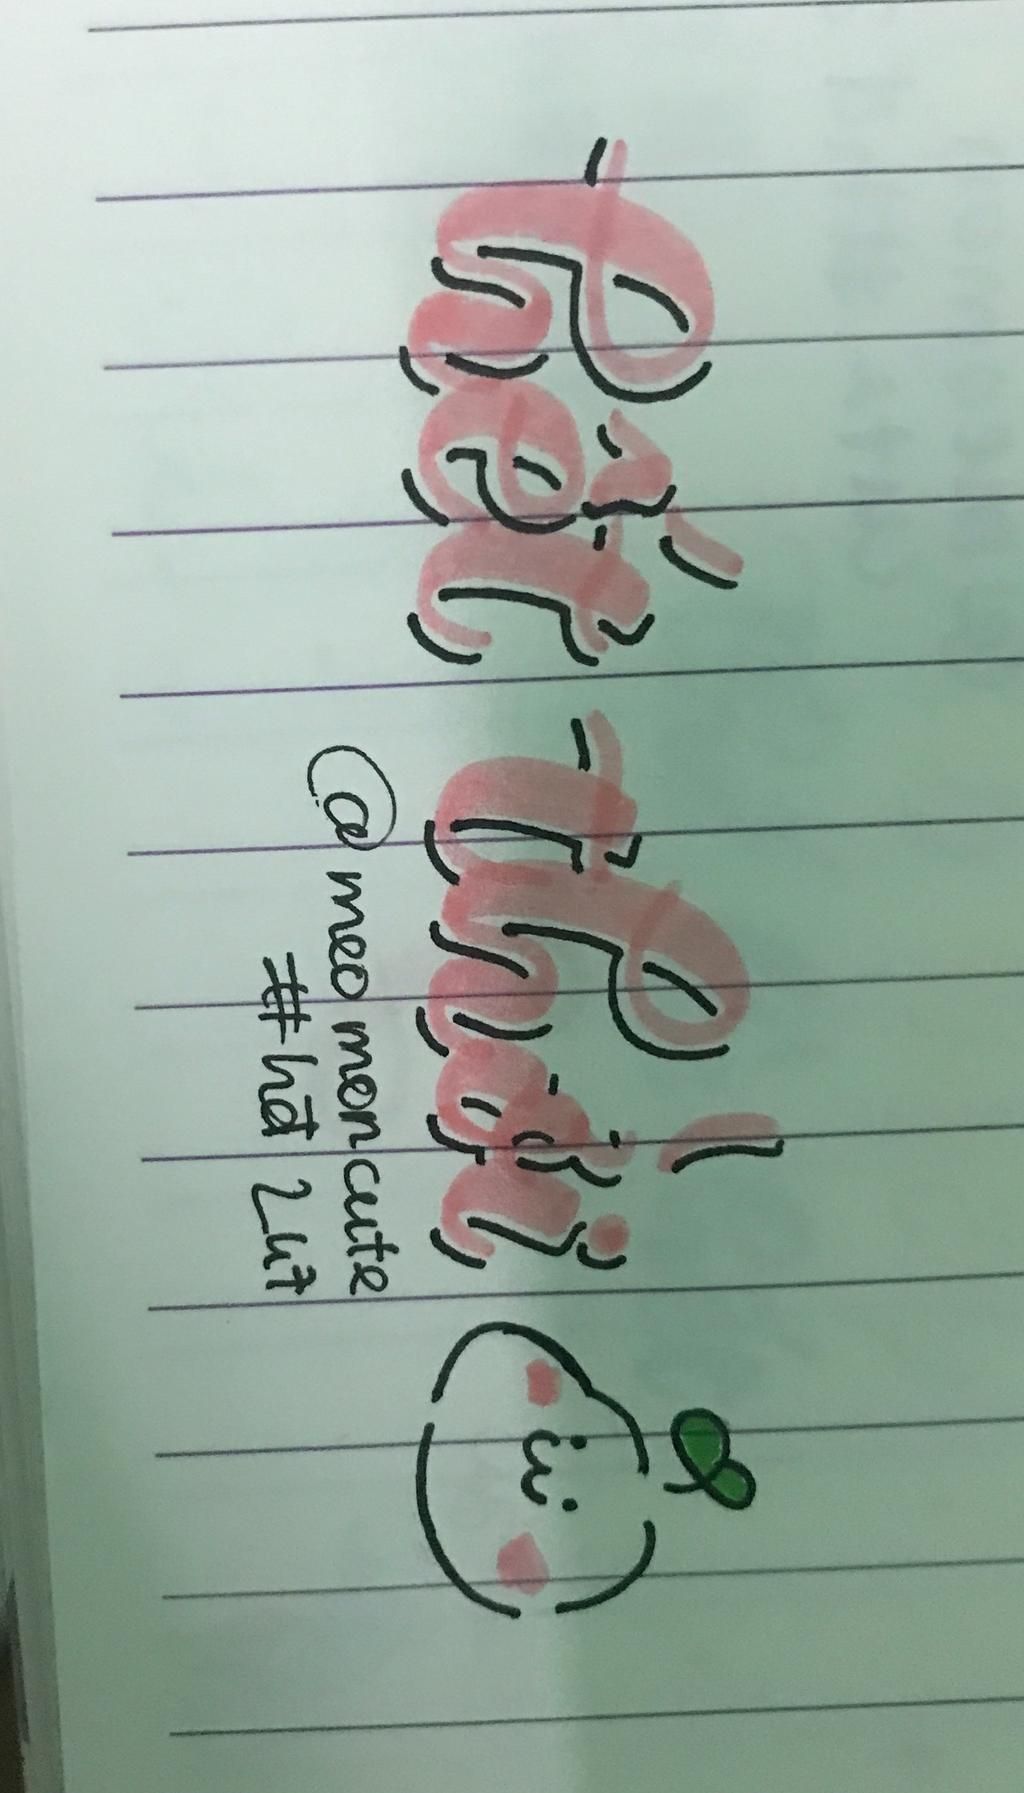 hết thời
@meo mon cute
#hết 247